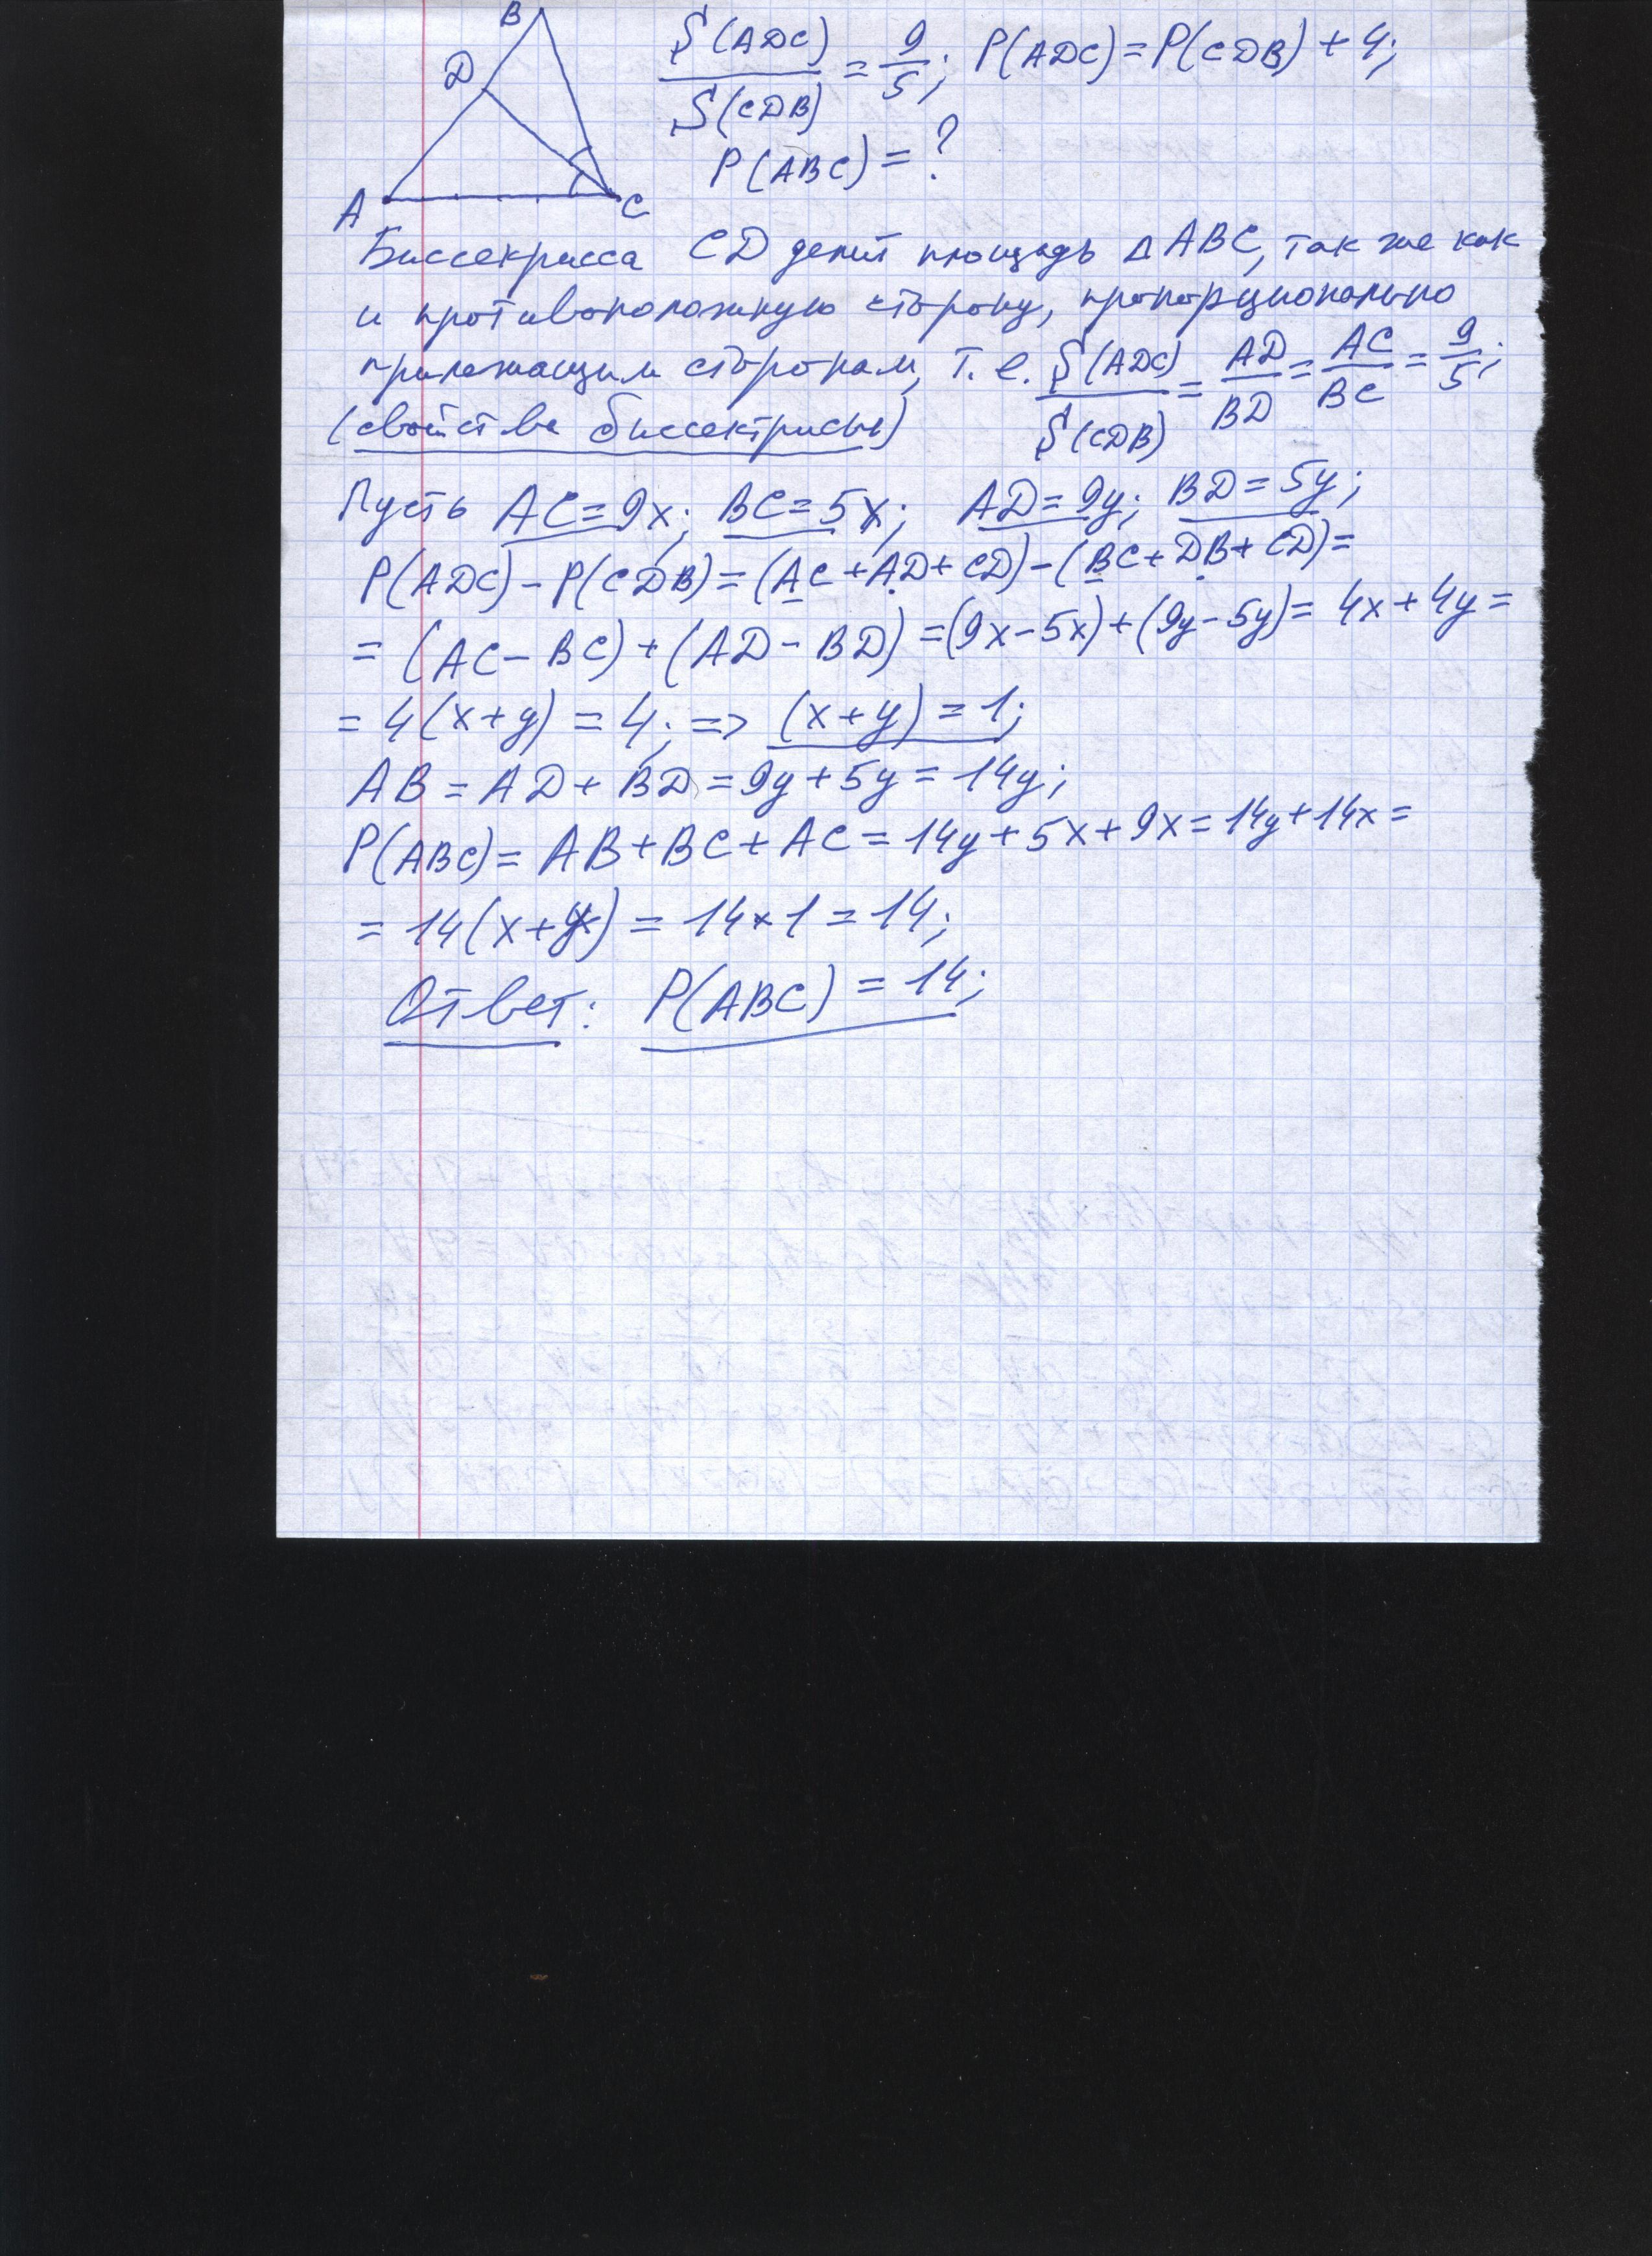 B
D
A
C
S(ADC)/S(CDB) = 9/5; P(ADC)=P(CDB)+4;
P(ABC)=?
Биссекрисса CD делит площадь ΔABC, так же как
и противоположную сторону, пропорционально
прилежащим сторонам, т. е. S(ADC)/S(CDB) = AD/BD = AC/BC = 9/5;
(свойства биссектрисы)
Пусть AC=9x; BC=5x; AD=9y; BD=5y;
P(ADC)-P(CDB)=(AC+AD+CD)-(BC+DB+CD)=
=(AC-BC)+(AD-BD)=(9x-5x)+(9y-5y)=4x+4y=
=4(x+y)=4; => (x+y)=1;
AB=AD+BD=9y+5y=14y;
P(ABC)=AB+BC+AC=14y+5x+9x=14y+14x=
=14(x+y)=14×1=14;
Ответ: P(ABC)=14;